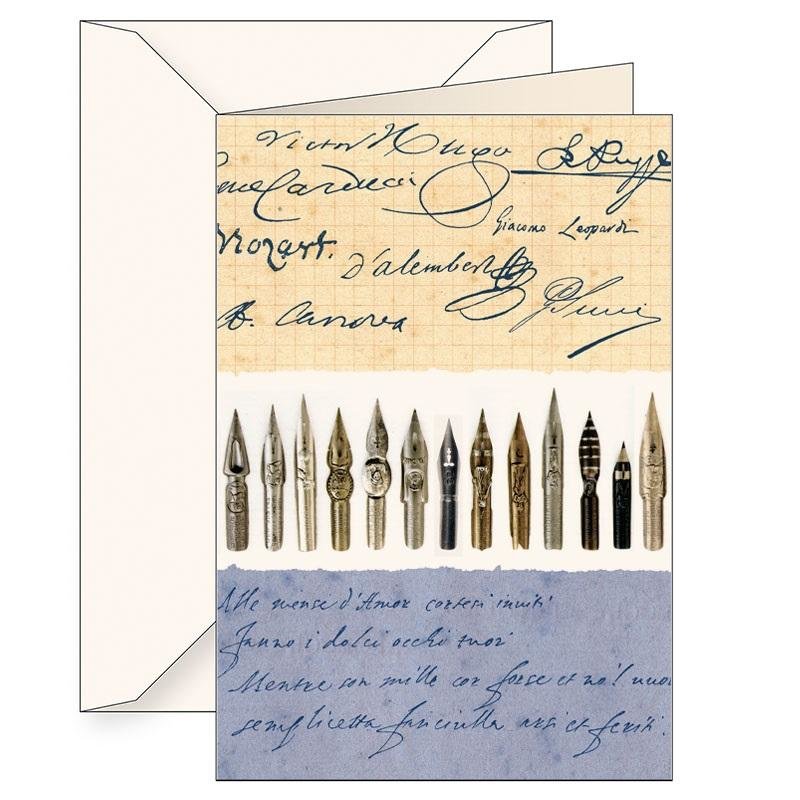 Victor Hugo
Carducci
Giacomo Leopardi
Mozart.
d'alembert
Canova
Alle mense d'Amor cortesi inviti
Fanno i dolci occhi tuoi
Mentre son mille cor forse et no'l vuoi
semplicetta fanciulla arsi et feriti.